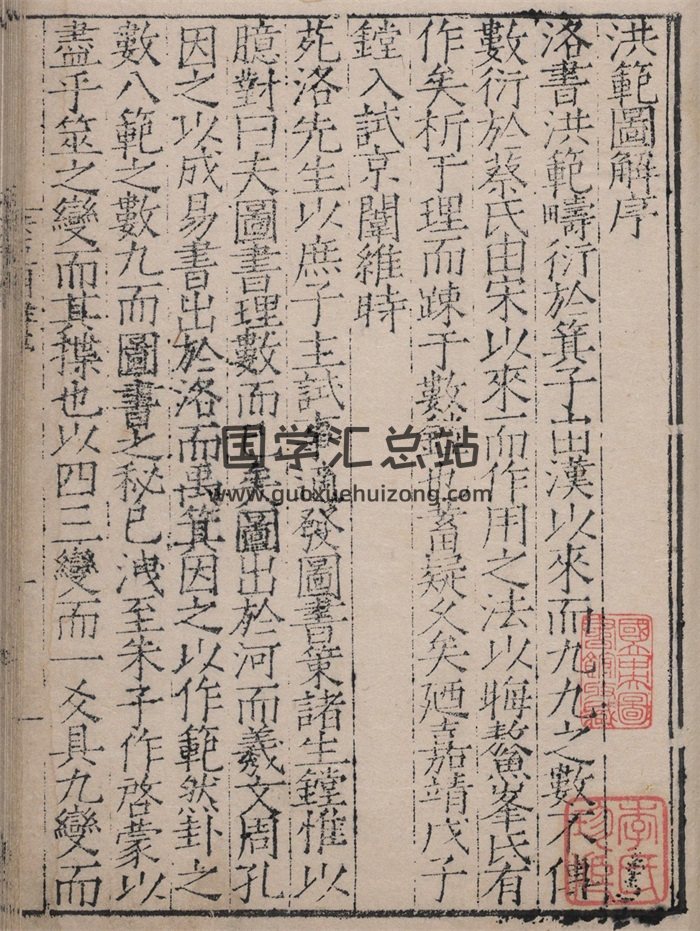 洪範圖解序
洛書洪範疇衍於箕子由漢以來而九九之數不傳
數衍於蔡氏由宋以來而作用之法以晦鰲峯氏有
作矣析于理而疎于數鏜也蓄疑久矣廼嘉靖戊子
鏜入試京闈維時
苑洛先生以庶子主試事適發圖書策諸生鏜惟以
臆對曰夫圖書理數而已矣圖出於河而羲文周孔
因之以成易書出於洛而禹箕因之以作範然卦之
數八範之數九而圖書之秘已洩至朱子作啓蒙以
盡乎筮之變而其揲也以四三變而一爻具九變而
国学汇总站
www.guoxuehuizong.com